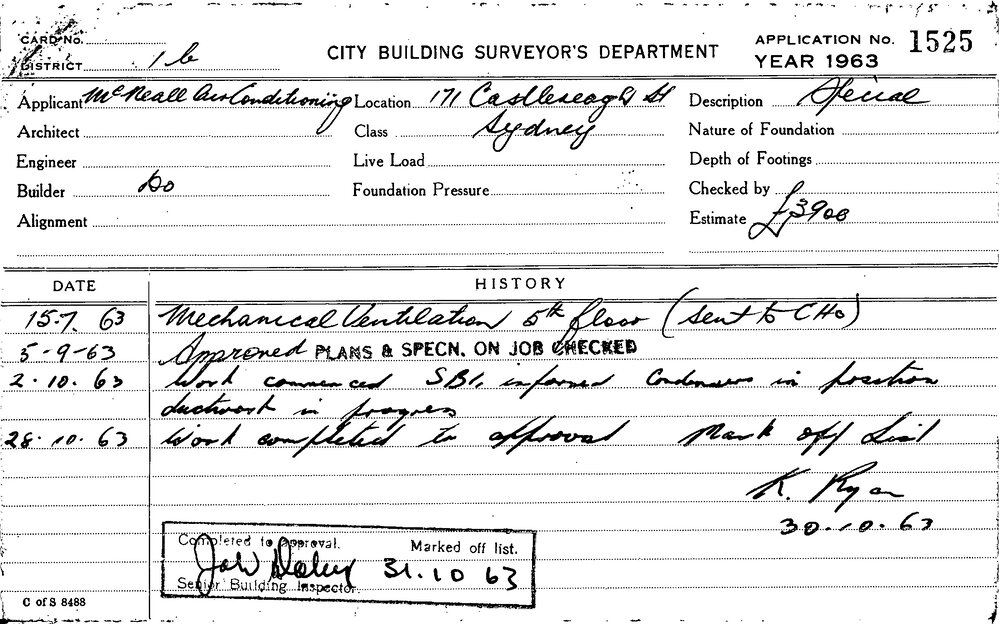 CARD No.
DISTRICT 1 b
CITY BUILDING SURVEYOR'S DEPARTMENT
APPLICATION No. 1525
YEAR 1963
Applicant McNeall Air Conditioning Location 171 Castlereagh St Description Special
Architect Class Sydney Nature of Foundation
Engineer Live Load Depth of Footings
Builder Do Foundation Pressure Checked by
Alignment Estimate £3900
DATE HISTORY
15.7.63 Mechanical Ventilation 5th floor (sent to CHO)
5-9-63 Approved PLANS & SPECN. ON JOB CHECKED
2.10.63 Work commenced SBI. informed Condensers in position
ductwork in progress
28.10.63 Work completed to approval Mark off List
K. Ryan
30.10.63
Completed to approval. Marked off list.
31.10 63
Senior Building Inspector.
C of S 8488